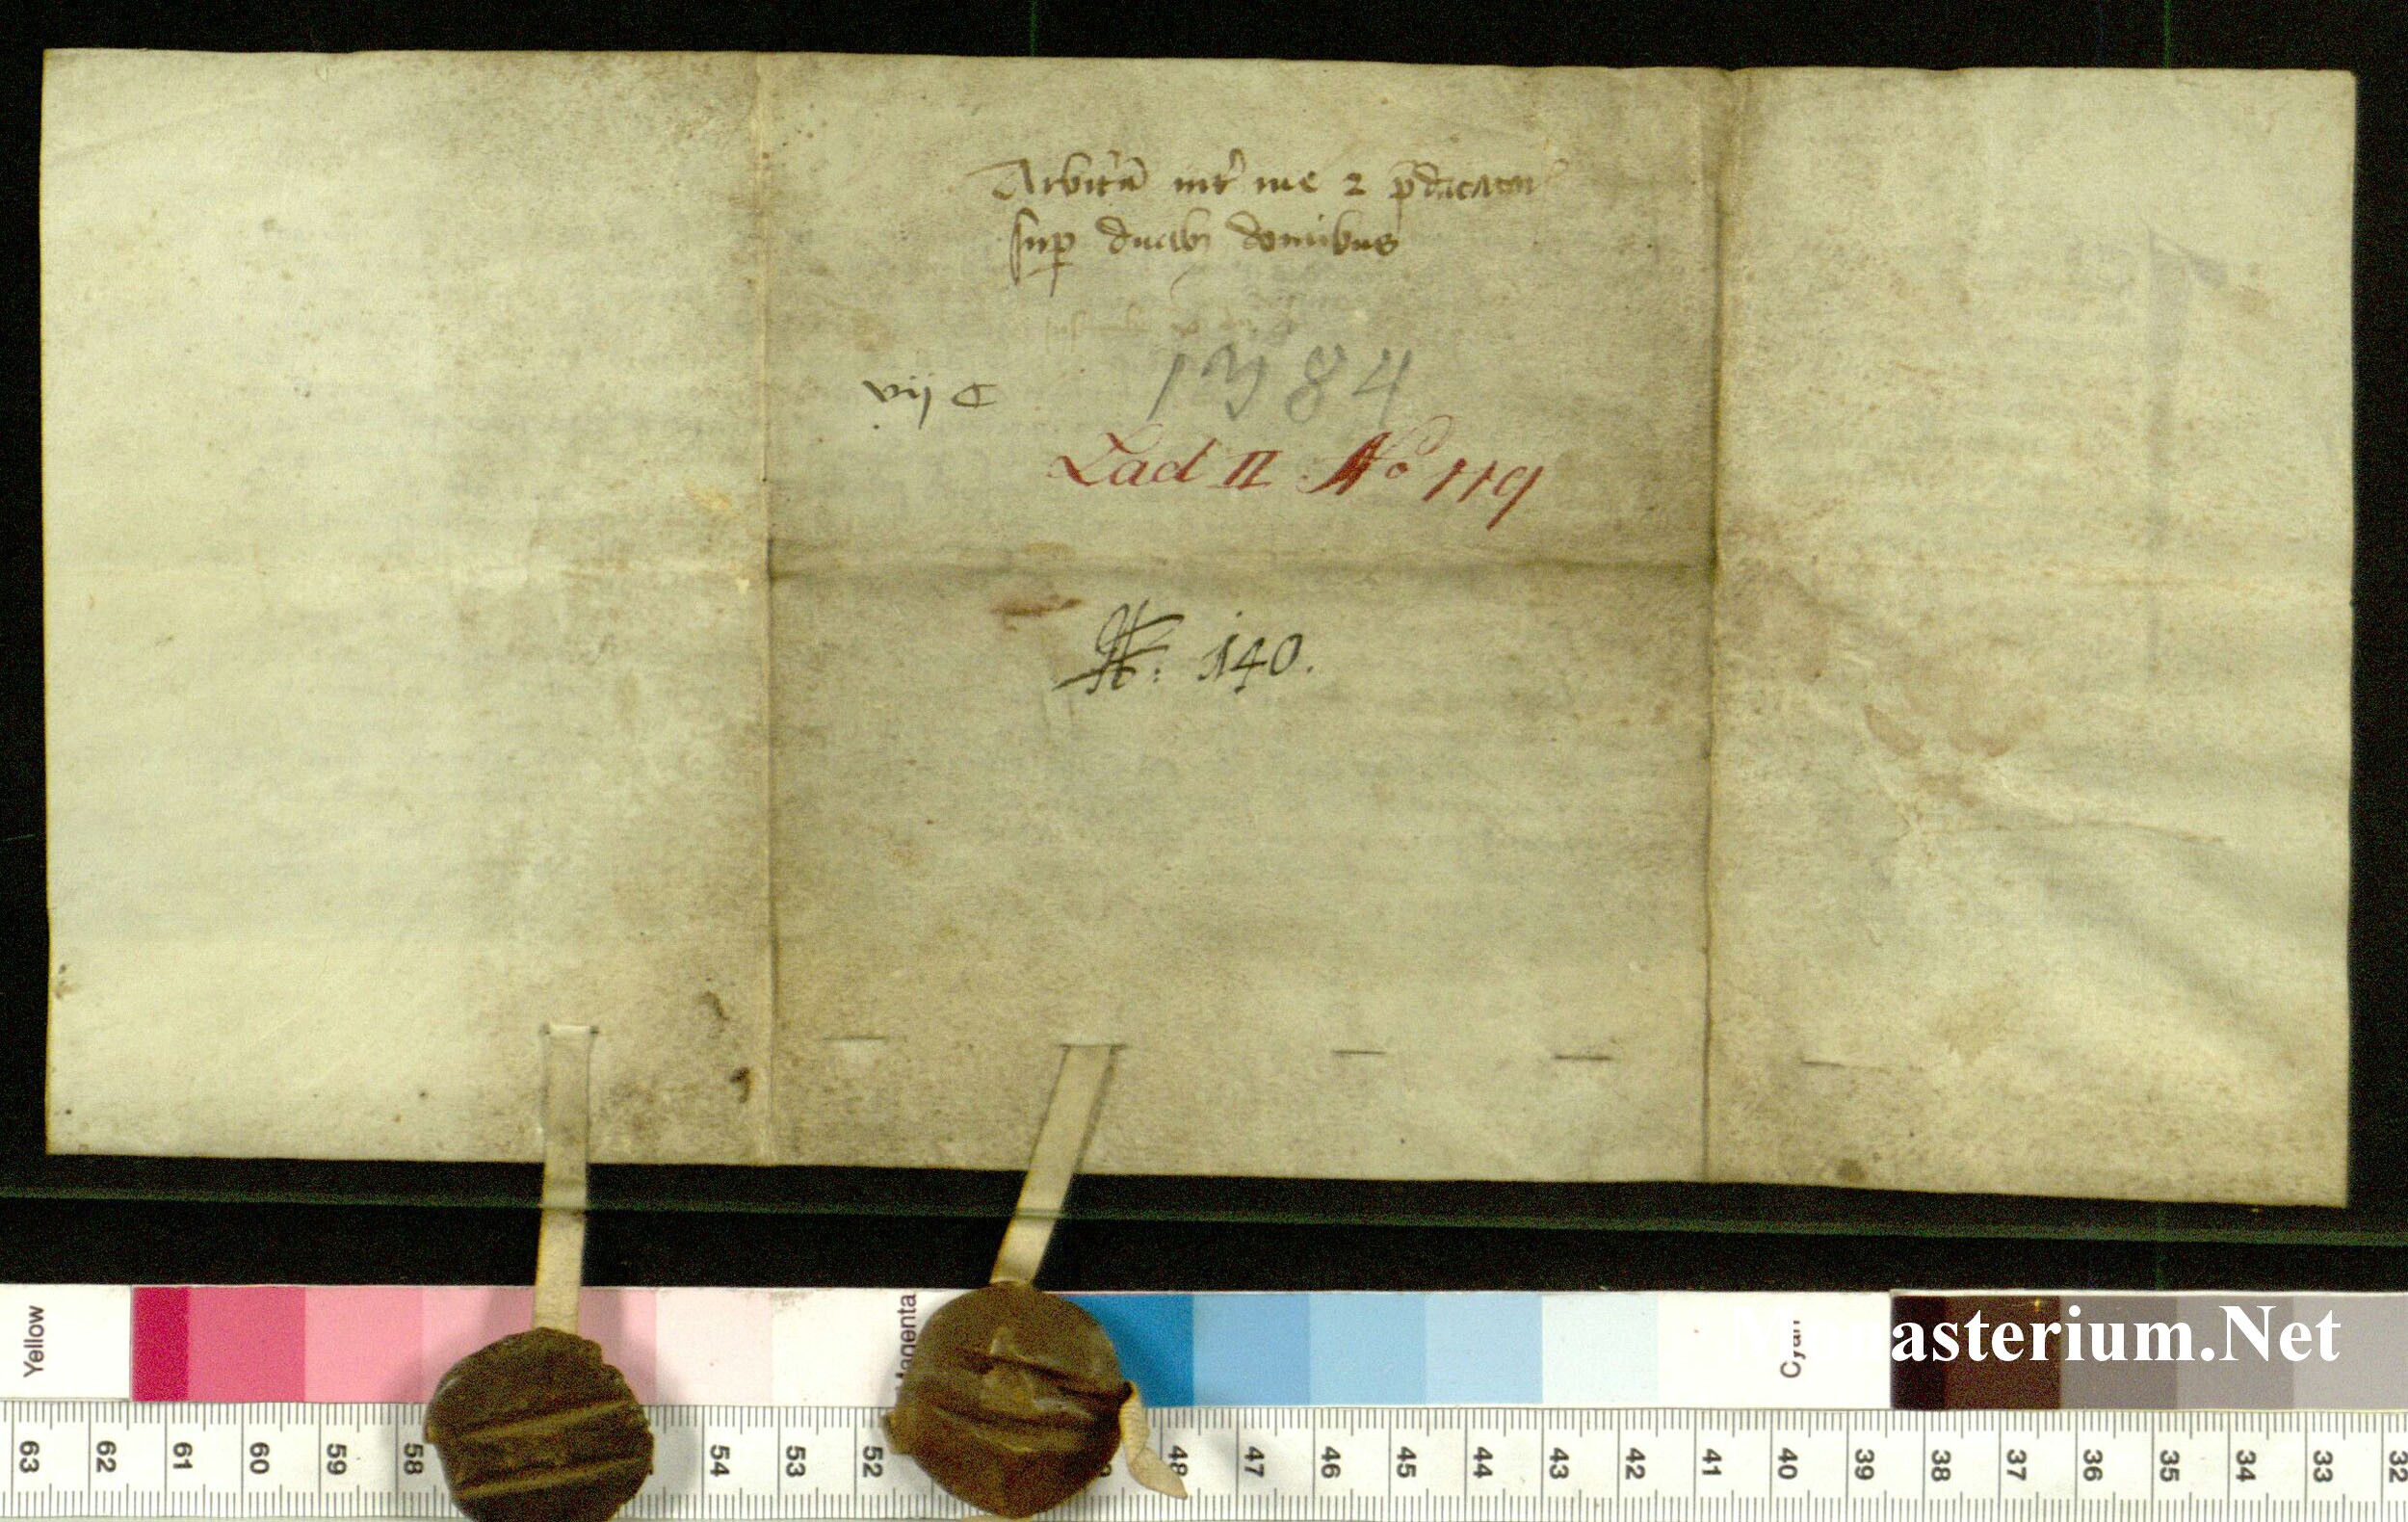 Arbit'ū int' me 2 p̄dicator
sup duab3 domibus
vij C
1384
Lad II No 119
N: 140.
Yellow
Magenta
Cyan
Monasterium.Net
63 62 61 60 59 58 54 53 52 48 47 46 45 44 43 42 41 40 39 38 37 36 35 34 33 32